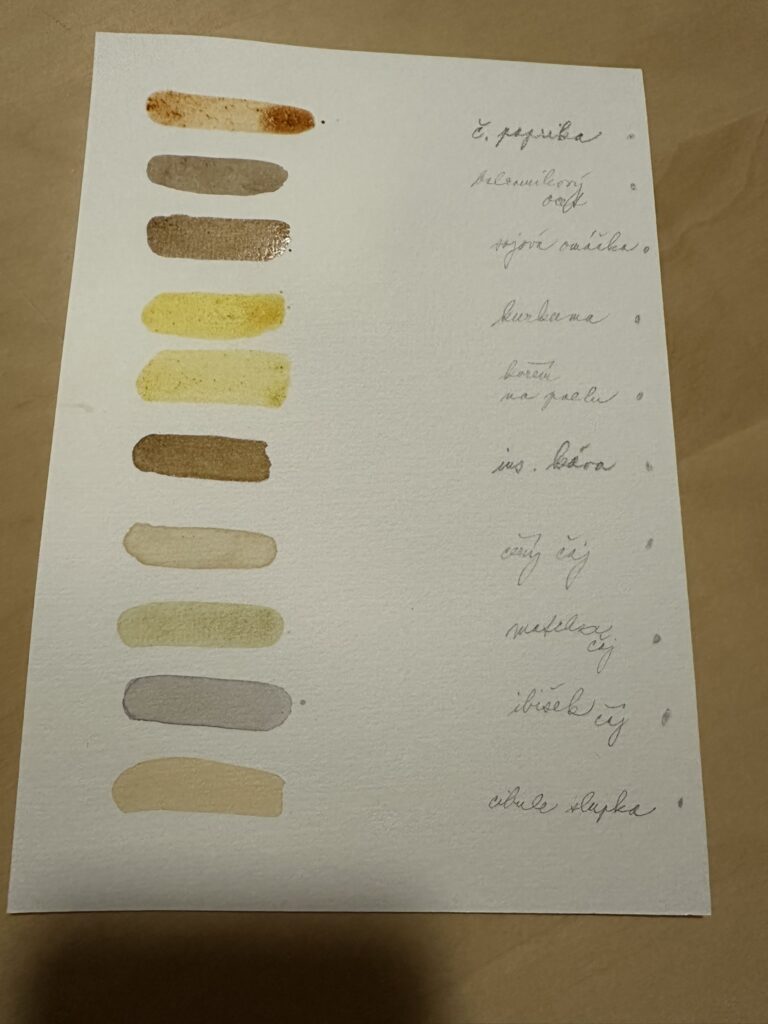 č. paprika
balsamikový
ocet
sojová omáčka
kurkuma
koření
na paellu
ins. káva
černý čaj
čaj
ibišek čaj
cibule slupka